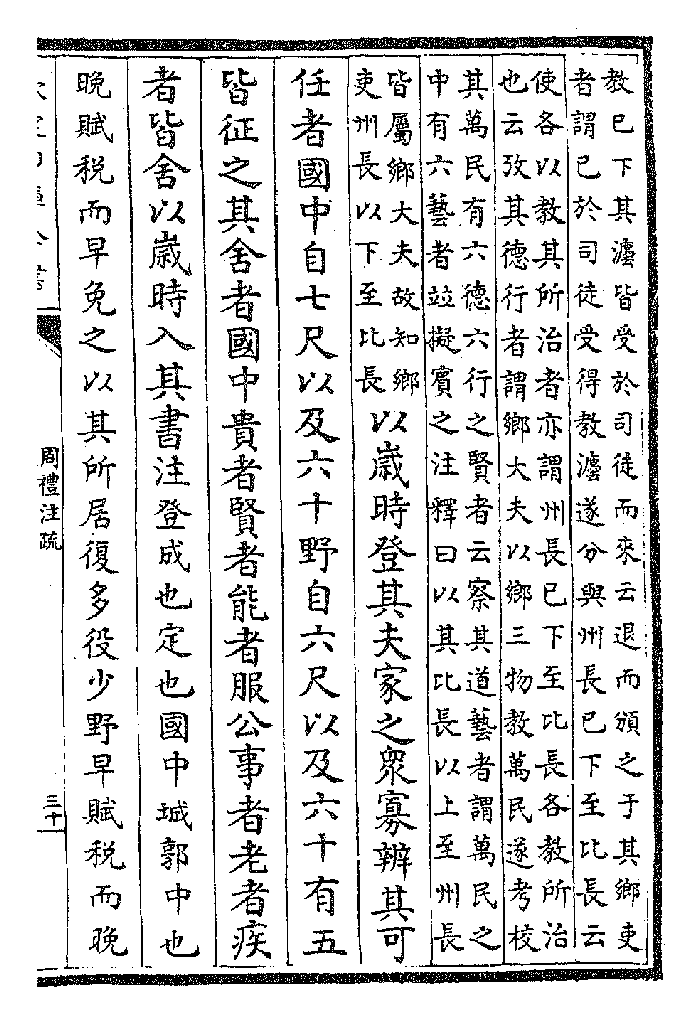 教已下其灋皆受於司徒而來云退而頒之于其鄉吏
者謂已於司徒受得教灋遂分與州長已下至比長云
使各以教其所治者亦謂州長已下至比長各教所治
也云攷其德行者謂鄉大夫以鄉三物教萬民遂考校
其萬民有六德六行之賢者云察其道藝者謂萬民之
中有六藝者並擬賓之注釋曰以其比長以上至州長
皆屬鄉大夫故知鄉
吏州長以下至比長
以歲時登其夫家之眾寡辨其可
任者國中自七尺以及六十野自六尺以及六十有五
皆征之其舍者國中貴者賢者能者服公事者老者疾
者皆舍以歲時入其書注登成也定也國中城郭中也
晚賦稅而早免之以其所居復多役少野早賦稅而晚
周禮注疏
三十